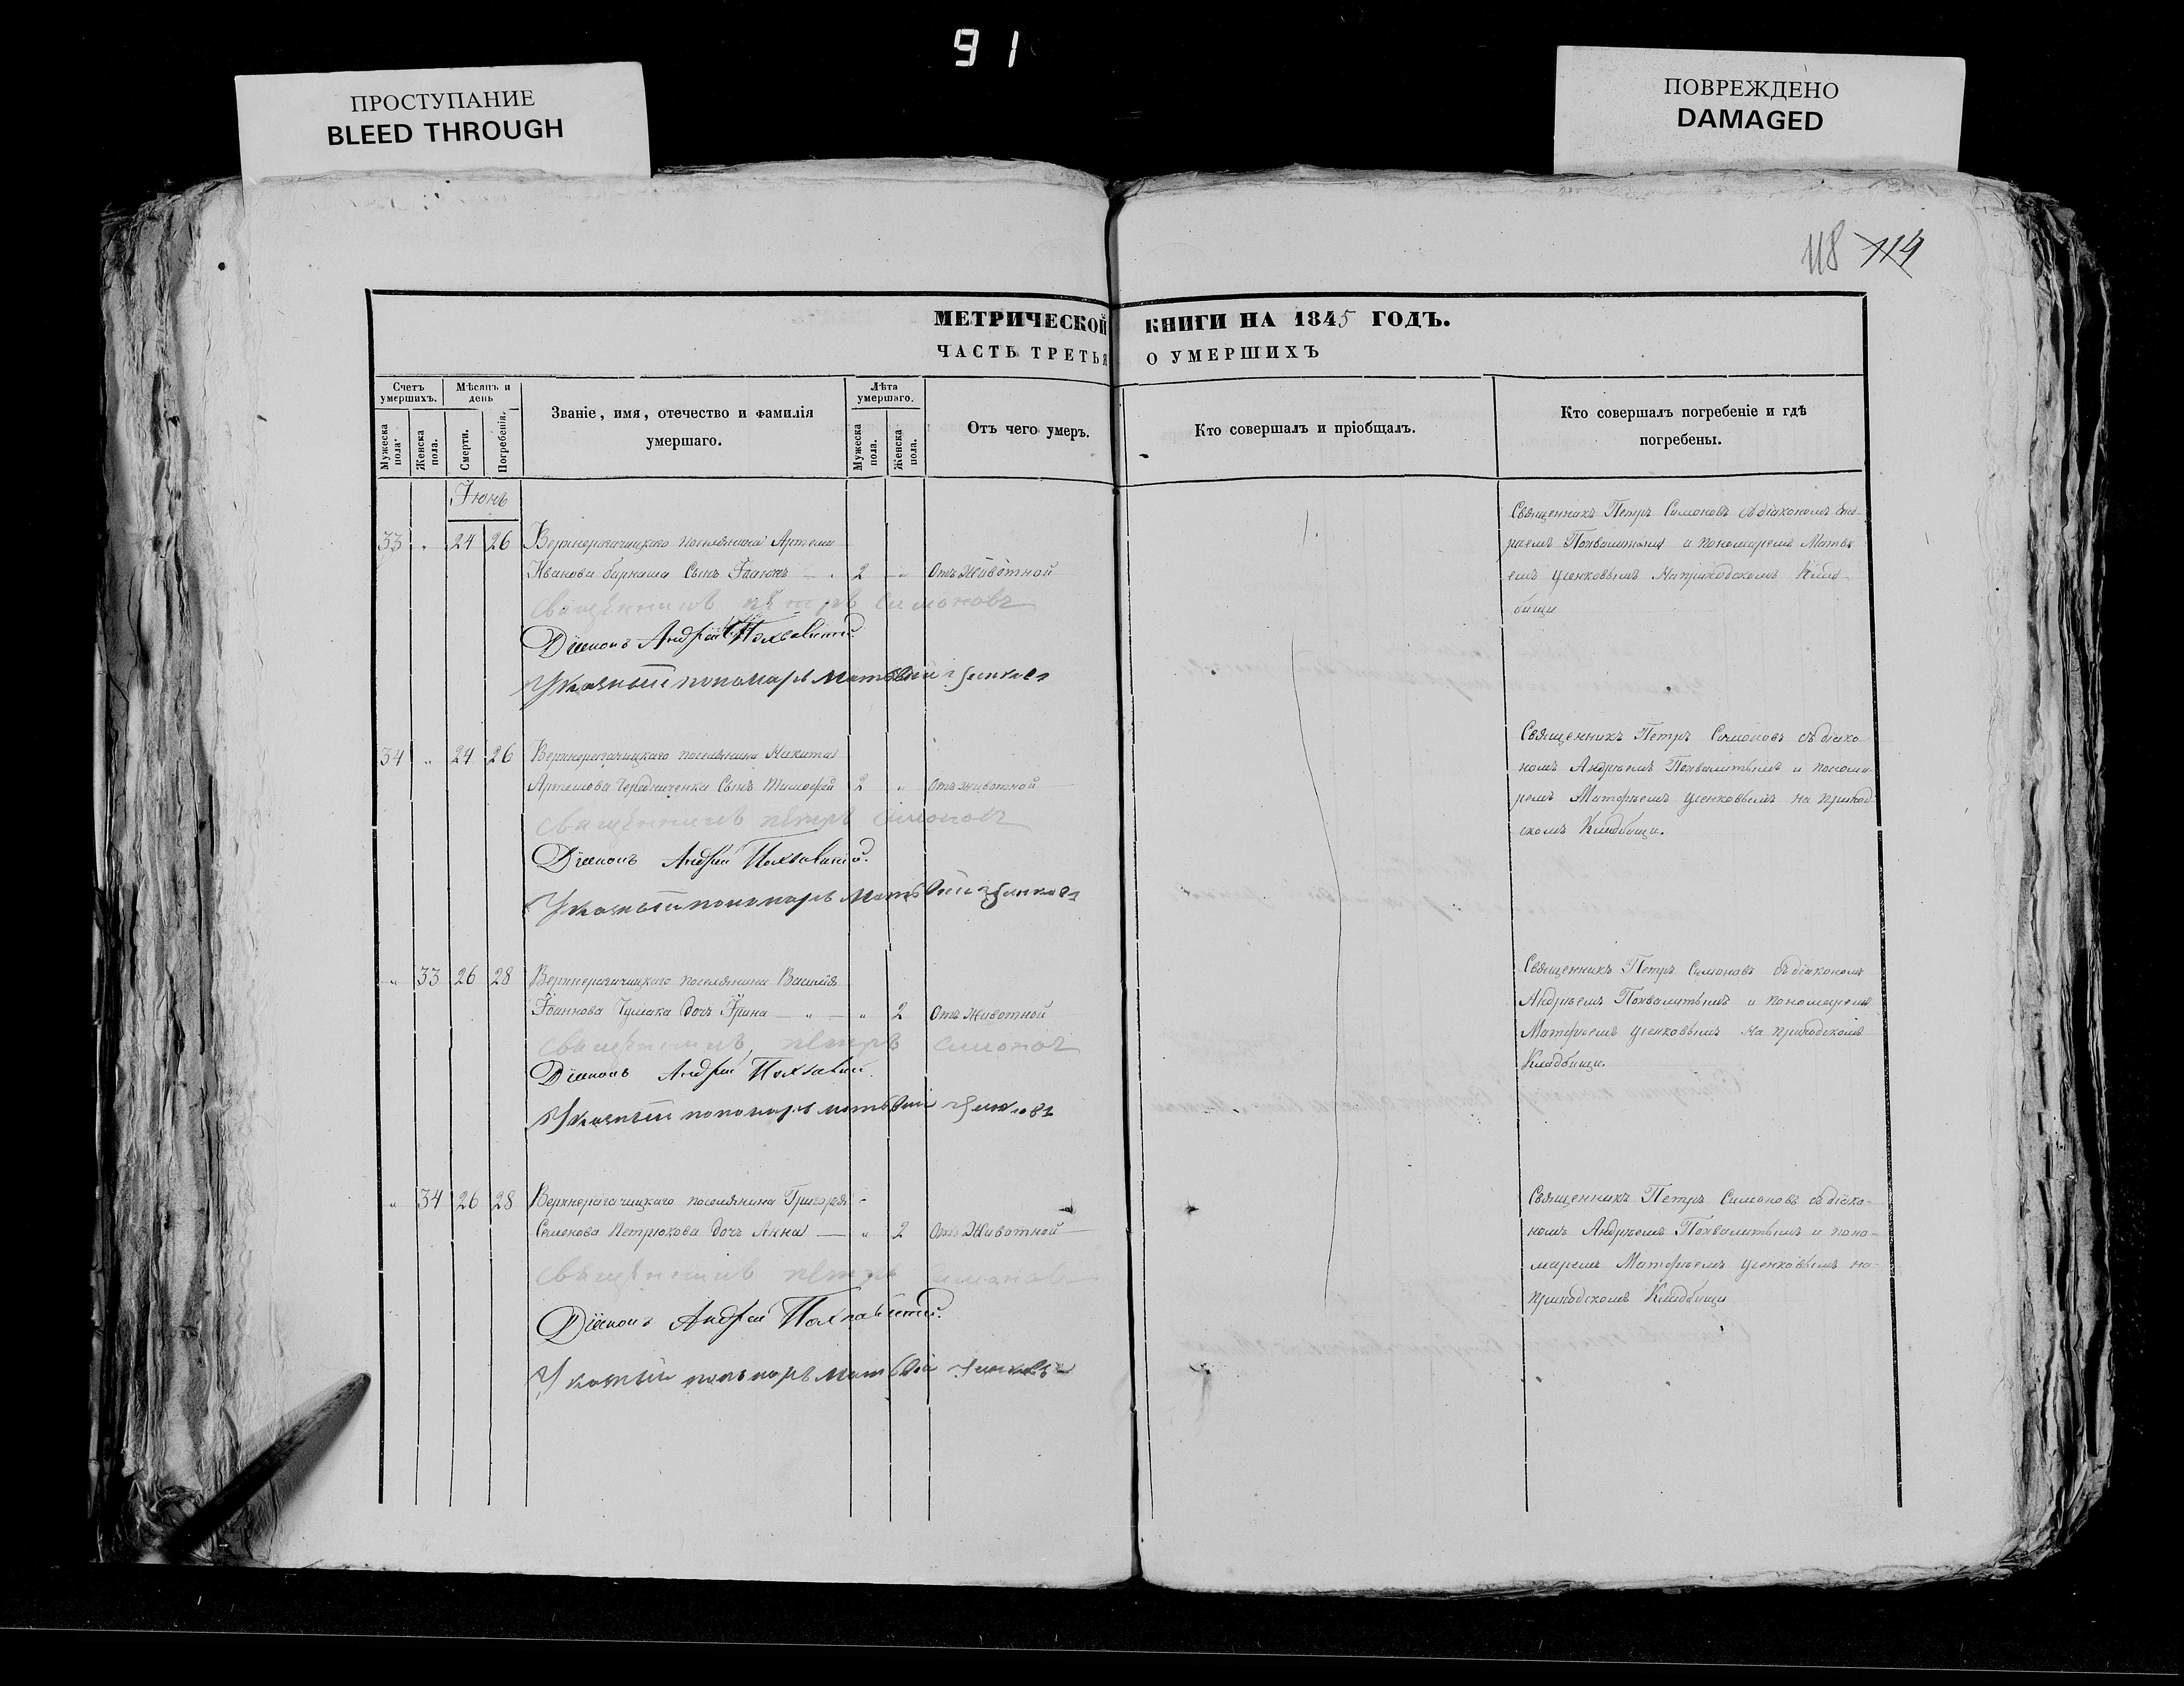 91
ПРОСТУПАНИЕ
BLEED THROUGH
ПОВРЕЖДЕНО
DAMAGED
118 114
МЕТРИЧЕСКОЙ КНИГИ НА 1845 ГОДЪ.
ЧАСТЬ ТРЕТЬЯ О УМЕРШИХЪ
Счетъ умершихъ.
Мужеска пола.
Женска пола.
Мѣсяцъ и день
Смерти.
Погребенія.
Званіе, имя, отечество и фамилія
умершаго.
Лѣта умершаго.
Мужеска пола.
Женска пола.
Отъ чего умеръ.
Кто совершалъ и пріобщалъ.
Кто совершалъ погребеніе и гдѣ
погребены.
Іюнь
33 " 24 26 Верхнерогачицкаго поселянина Артема
Иванова Сынъ Іоаннъ 2 " Отъ Животной
Священникъ Петръ Симоновъ
Діаконъ Андрей Похвалитый
Указный пономарь Матвѣй
Священникъ Петръ Симоновъ съ діакономъ Анд-
реемъ Похвалитымъ и пономаремъ Матве-
емъ На приходскомъ Клад-
бищи
34 " 24 26 Верхнерогачицкаго поселянина Никиты
Артемова Чередниченка Сынъ Тимофей 2 " Отъ Животной
Священникъ Петръ Симоновъ
Діаконъ Андрей Похвалитый.
Указный пономарь Матвѣй
Священникъ Петръ Симоновъ съ діако-
номъ Андреемъ Похвалитымъ и понома-
ремъ Матфеемъ на приход-
скомъ Кладбищи.
" 33 26 28 Верхнерогачицкаго поселянина Василія
Іоаннова Чумака дочь Ирина " 2 Отъ Животной
Священникъ Петръ Симоновъ
Діаконъ Андрей Похвалитый.
Указный пономарь Матвѣй
Священникъ Петръ Симоновъ съ діакономъ
Андреемъ Похвалитымъ и пономаремъ
Матфеемъ на приходскомъ
Кладбищи.
" 34 26 28 Верхнерогачицкаго поселянина Григорія
Семенова Петрюкова дочь Анна " 2 Отъ Животной
Священникъ Петръ Симоновъ
Діаконъ Андрей Похвалитый.
Указный пономарь Матвѣй
Священникъ Петръ Симоновъ съ діако-
номъ Андреемъ Похвалитымъ и поно-
маремъ Матфеемъ на
приходскомъ Кладбищи